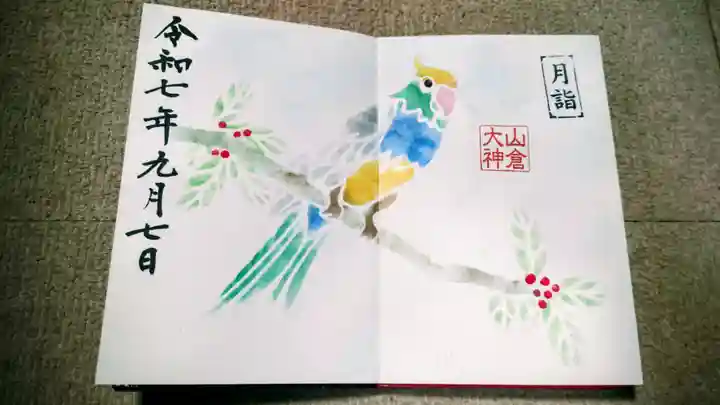 月詣
山倉
大神
令和七年九月七日